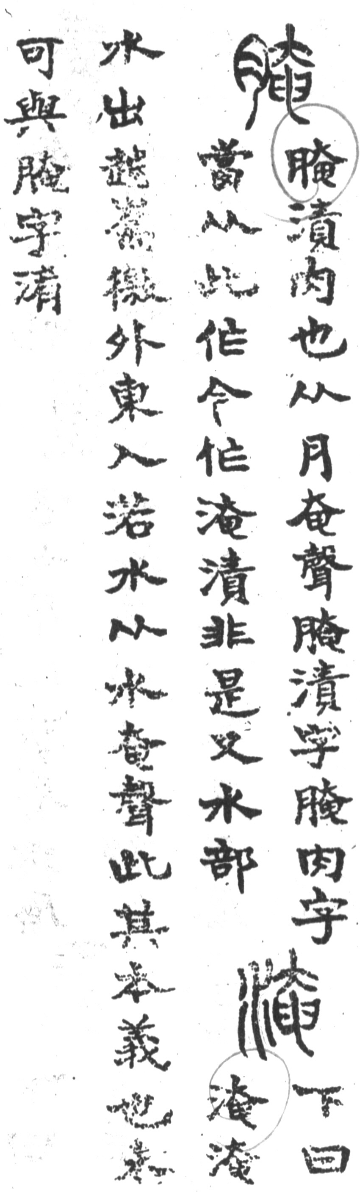 腌
腌漬肉也从月奄聲腌漬字腌肉字
當从此作今作淹漬非是又水部
淹
下曰
淹淹
水出越嶲徼外東入若水从水奄聲此其本義也未
可與腌字淆